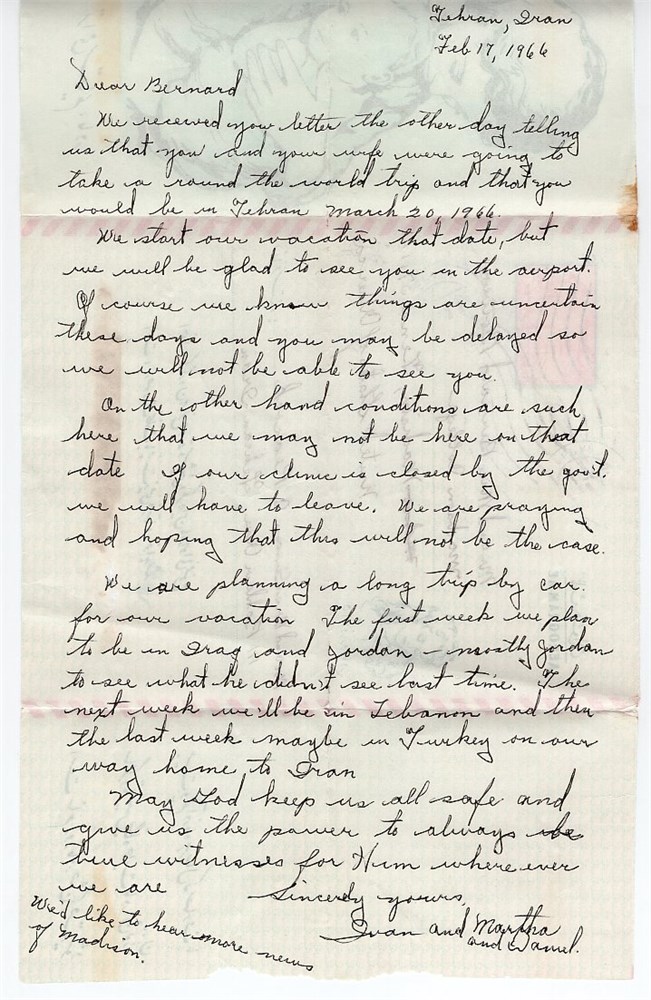 Tehran, Iran
Feb 17, 1966
Dear Bernard
We received your letter the other day telling
us that you and your wife were going to
take a round the world trip and that you
would be in Tehran March 20, 1966.
We start our vacation that date, but
we will be glad to see you in the airport.
Of course we know things are uncertain
these days and you may be delayed so
we will not be able to see you.
On the other hand conditions are such
here that we may not be here on that
date If our clinic is closed by the gov't.
we will have to leave. We are praying
and hoping that this will not be the case.
We are planning a long trip by car.
for our vacation The first week we plan
to be in Iraq and Jordan - mostly Jordan
to see what he didn't see last time. The
next week we'll be in Lebanon and then
the last week maybe in Turkey on our
way home to Iran
May God keep us all safe and
give us the power to always be
true witnesses for Him where ever
we are
Sincerely yours,
Ivan and Martha
and Daniel.
We'd like to hear more news
of Madison.